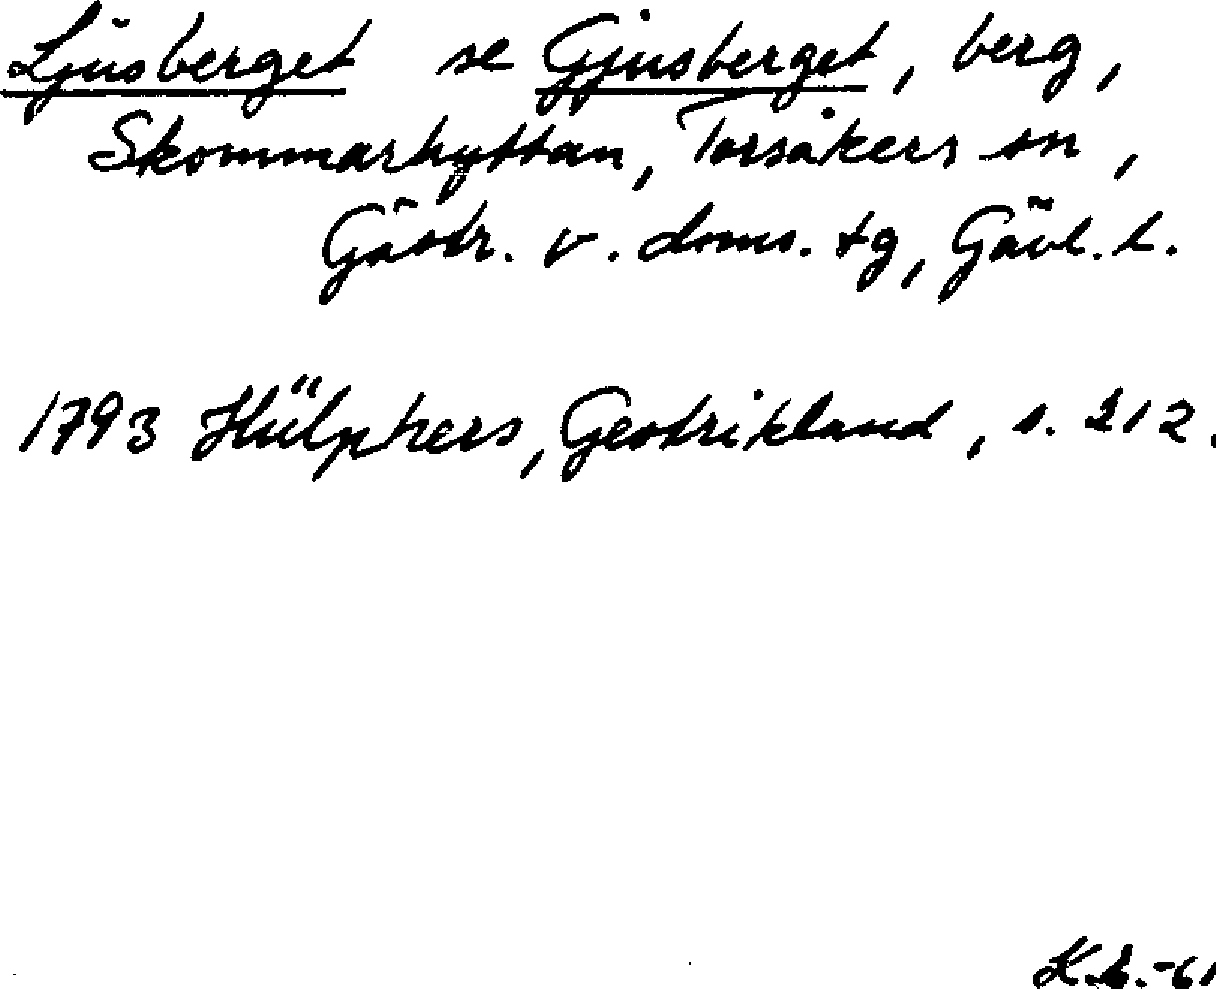 Ljusberget se Gjusberget, berg,
Skommarhyttan, Torsåkers sn,
Gästr. v. doms. tg, Gävl. l.
1793 Hülphers, Gestrikland, s. 212.
K.L.-61